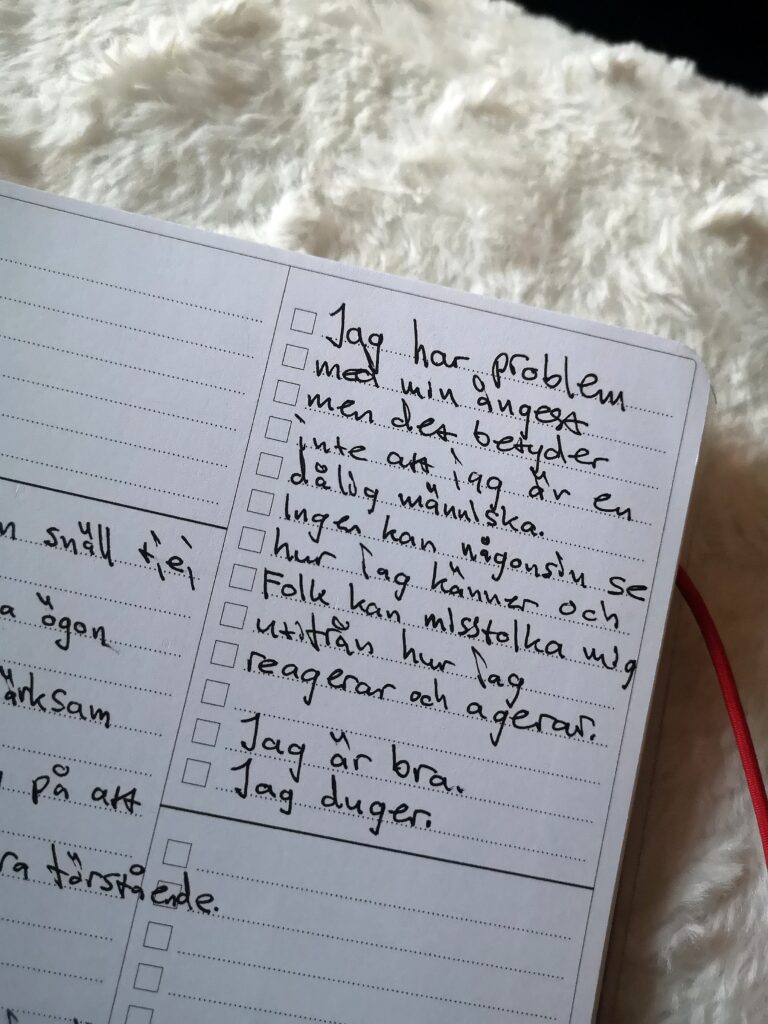 n snäll tjej
a ögon
ärksam
på att
ra förstående.
Jag har problem
med min ångest
men det betyder
inte att jag är en
dålig människa.
Ingen kan någonsin se
hur jag känner och
Folk kan misstolka mig
utifrån hur jag
reagerar och agerar.
Jag är bra.
Jag duger.